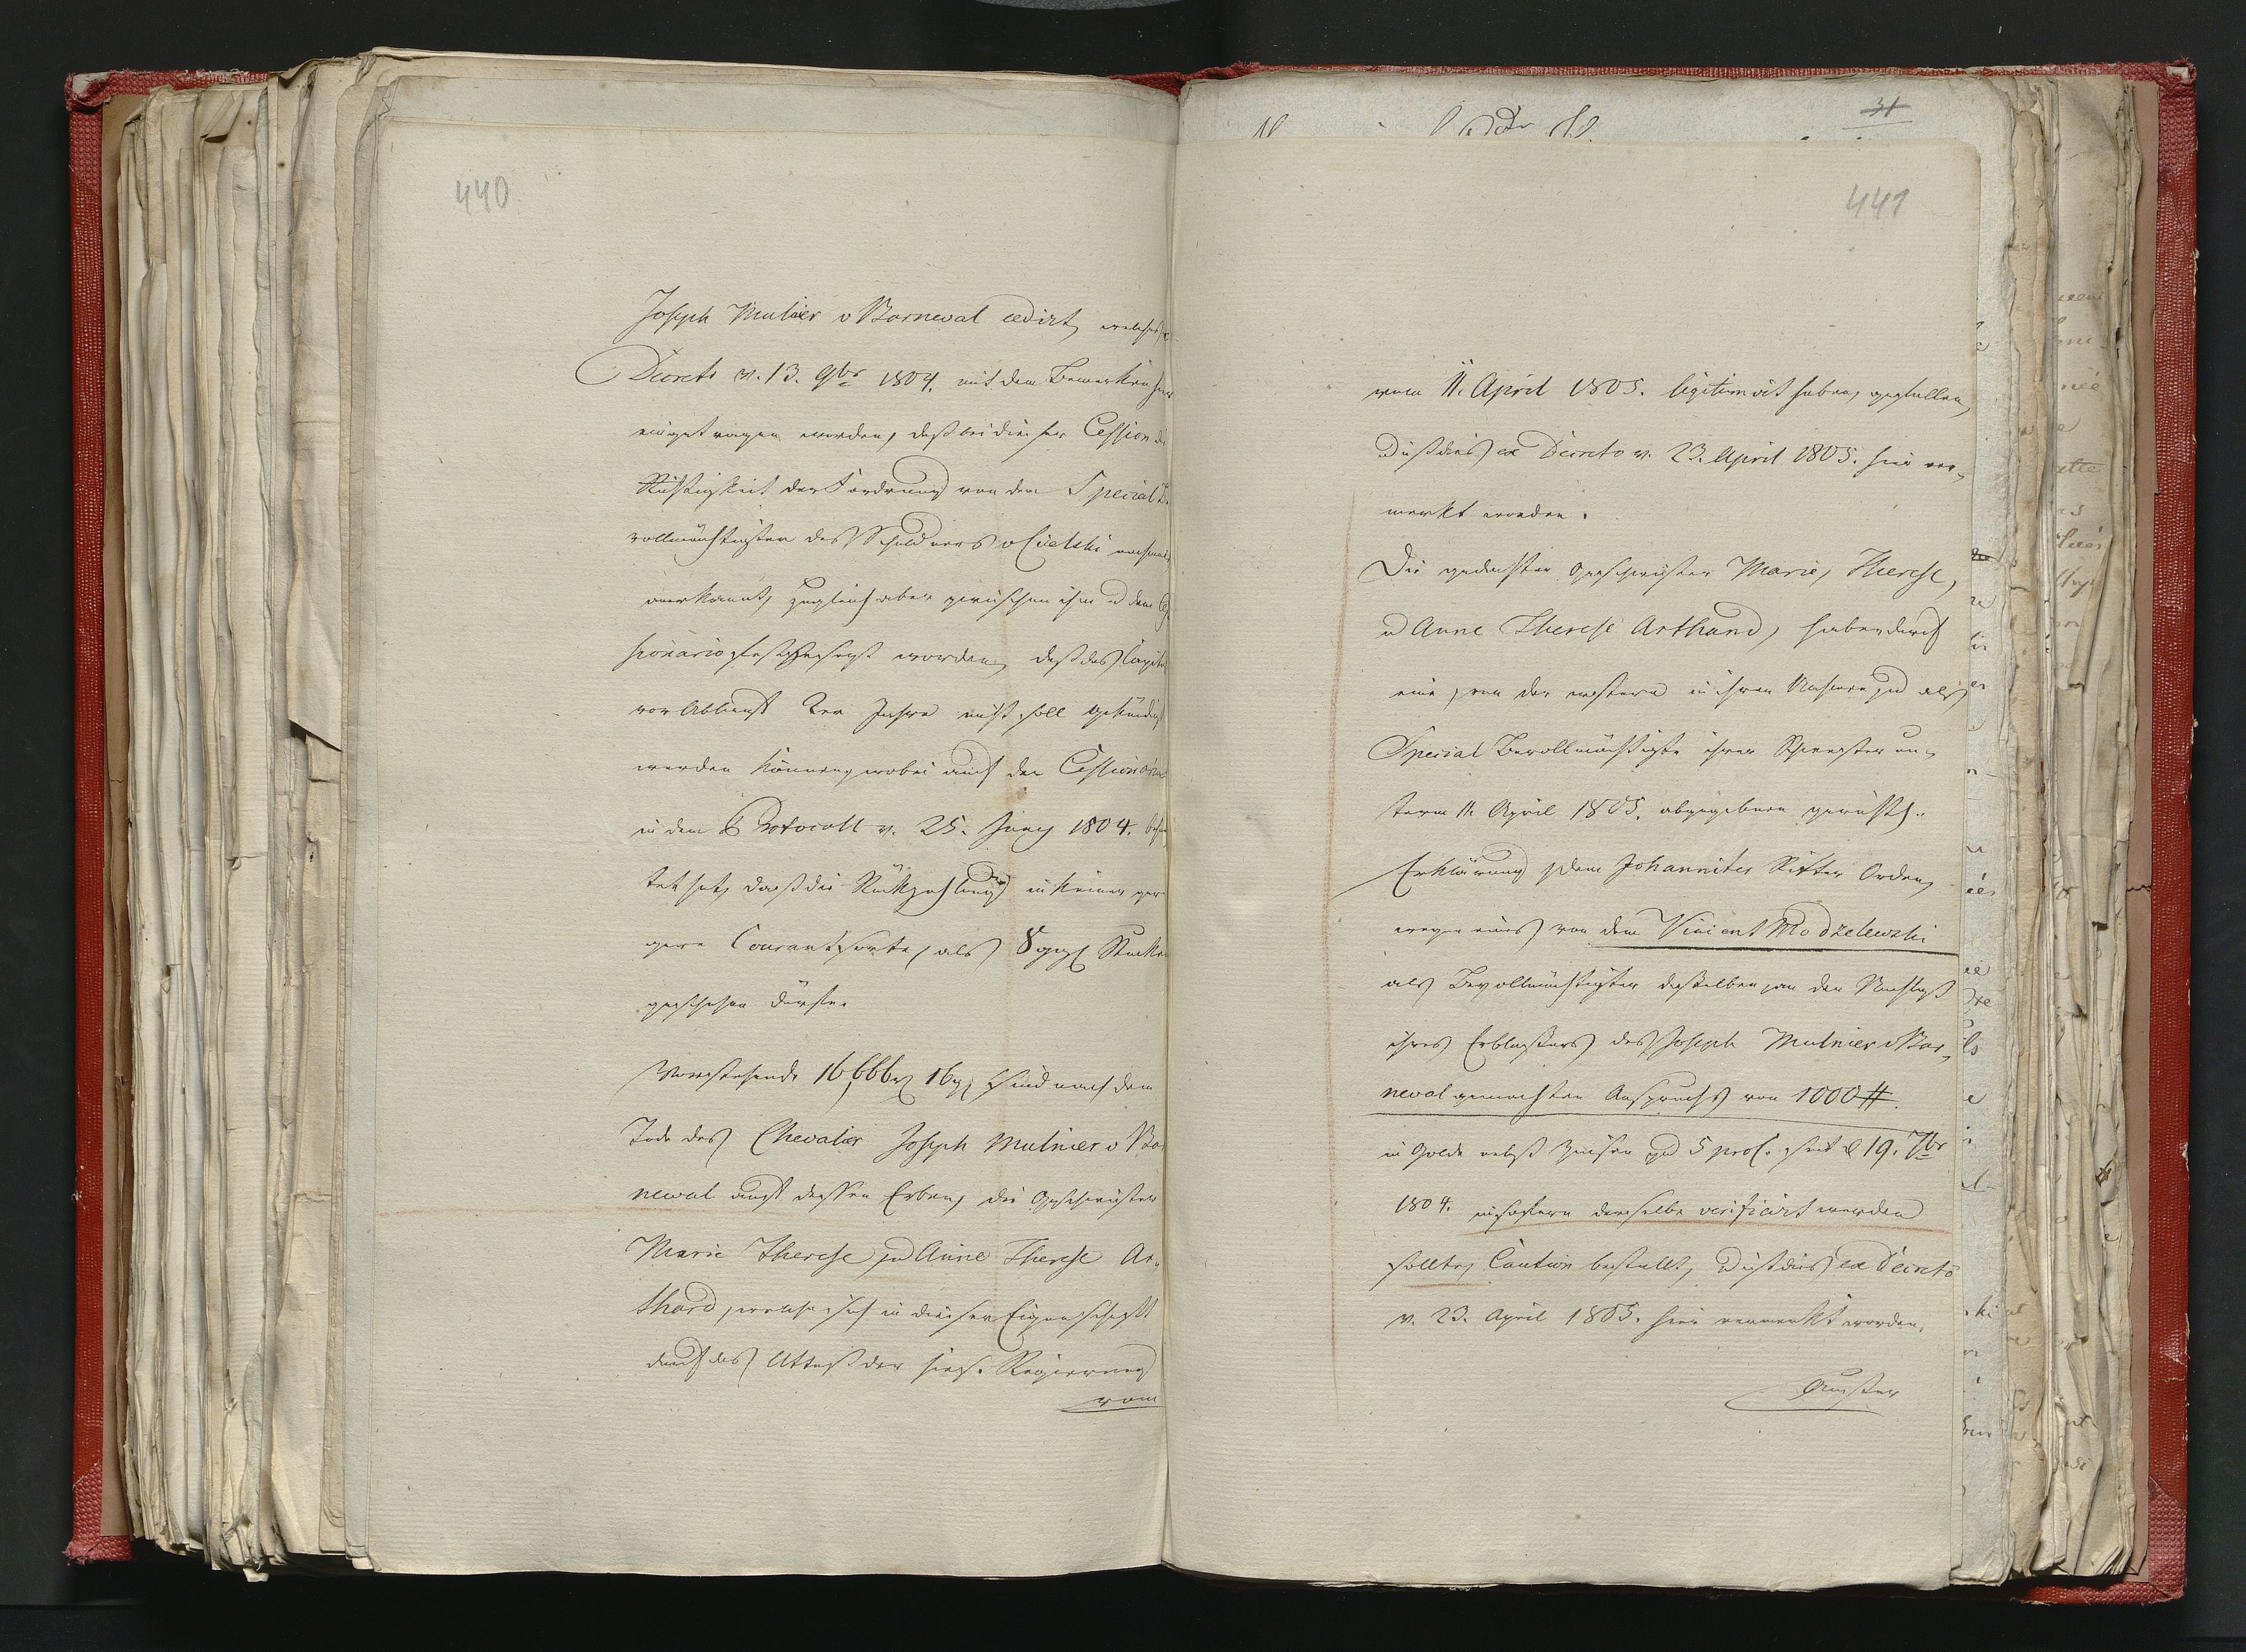 440
Joseph Mulier v Barneval cedirt, welches
Decreto v. 13. 9br 1804. mit dem Bemerken hier
eingetragen worden, daß bei dieser Cession die
Richtigkeit der Forderung von dem Special Be
vollmächtigten des Schuldners v Cielski nochmals
anerkannt, zugleich aber zwischen ihm u dem Ces
sionario festgesetzt worden, daß das Capital
vor Ablauf Jahre nicht soll gekündigt
werden können, wobei auch der Cessionarius
in dem Protocoll v. 25. Juny 1804.
tet hat, daß die Rückzahlung in keiner gerin
gern Courantsorte, als 8 ggl Stücken
geschehen dürfte.
Vorstehende 16,666 16 sind nach dem
Tode des Chevalier Joseph Mulnier v Bar
neval auf dessen Erben, die Geschwister
Marie Therese und Anne Therese Ar-
thard, welche sich in dieser Eigenschaft
durch das Attest der hies. Regierung
vom
31
441
vom 11. April 1805. legitimirt haben, gefallen,
u ist dies ex Decreto v. 23. April 1805. hier ver-
merkt worden.
Die gedachten Geschwister Marie, Therese,
u Anne Therese Arthand, haben durch
eine, von der erstern in ihrem Nahmen, u als
Special Bevollmächtigte ihrer Schwester un-
term 11. April 1805. abgegebene gerichtl.
Erklärung, dem Johanniter Ritter Orden,
wegen eines von dem Vincent Modzelewski
als Bevollmächtigter desselben, an den Nachlaß
ihres Erblassers des Joseph Mulnier v Bar-
neval gemachten Anspruchs von 1000 #
in Golde nebst Zinsen zu 5 proC. seit d 19. 7br
1804. insofern derselbe verificirt werden
sollte, Caution bestellt, u ist dies ex Decreto
v. 23. April 1805. hier vermerkt worden.